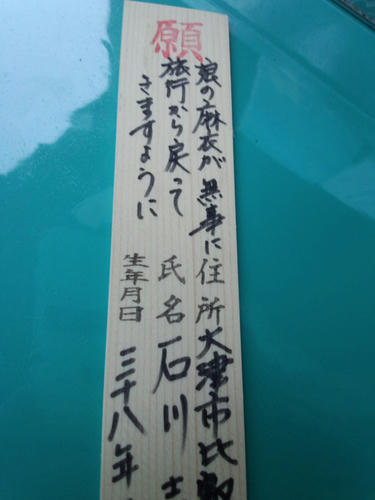 願
娘の麻衣が無事に
旅行から戻って
きますように
住所 大津市比
氏名 石川
生年月日 三十八年